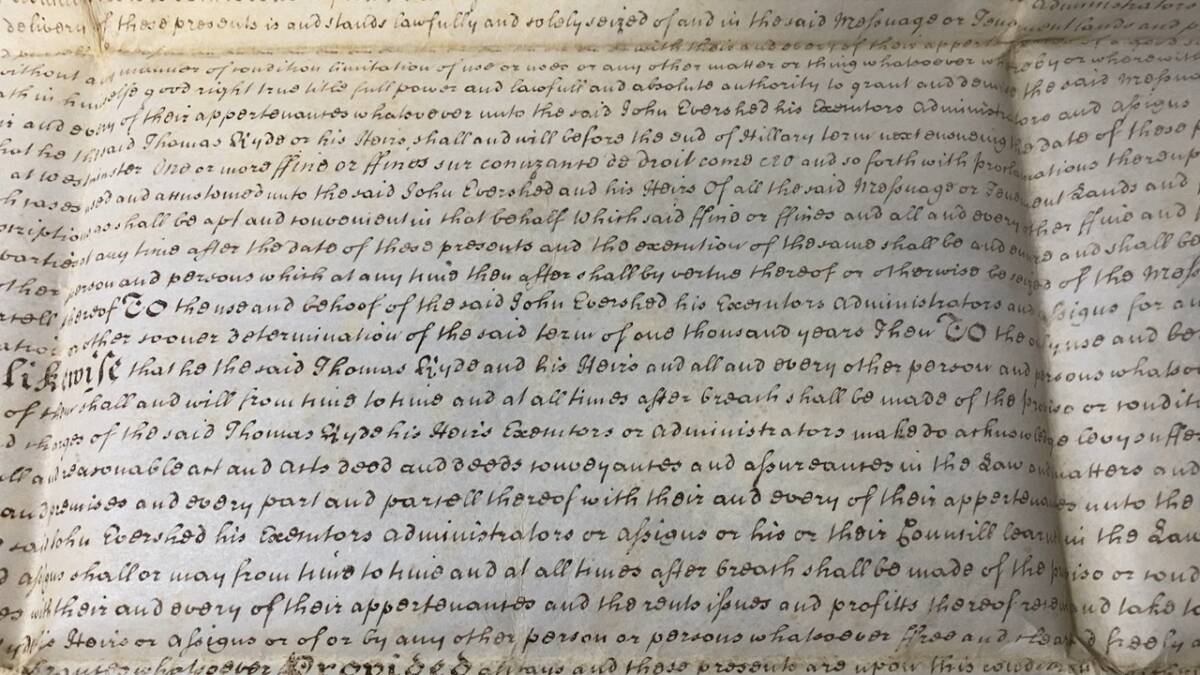 Administrators
delivery of these presents is and stands lawfully and solely seized of and in the said Messuage or Tenement lands and
with their and every of their
without any manner of condition limitation of use or uses or any other matter or thing whatsoever whereby or wherewith
in himselfe good right true title full power and lawfull and absolute authority to grant and demise the said Messuage
and every of their appertenances whatsoever unto the said John Evershed his Executors Administrators and Assigns
that he the said Thomas Hyde or his Heirs shall and will before the end of Hillary term next ensueing the date of these
at Westminster One or more ffine or ffines sur conuzance de droit come ceo and so forth with Proclamations thereupon
used and accustomed unto the said John Evershed and his Heirs Of all the said Messuage or Tenement Lands and
as shall be apt and convenient in that behalf Which said ffine or ffines and all and every other ffine and
parties at any time after the date of these presents and the execution of the same shall be and enure and shall be
other person and persons which at any time then after shall by vertue thereof or otherwise be seized of the Messuage
thereof TO the use and behoof of the said John Evershed his Executors Administrators and Assigns for
other sooner determination of the said term of one thousand years Then TO the only use and
likewise that he the said Thomas Hyde and his Heirs and all and every other person and persons whatsoever
of them shall and will from time to time and at all times after breach shall be made of the proviso or
charges of the said Thomas Hyde his Heirs Executors or Administrators make do acknowledge levy suffer
all and reasonable act and acts deed and deeds conveyances and assureances in the Law and matters and
premises and every part and parcell thereof with their and every of their appertenances unto the
said John Evershed his Executors Administrators or Assigns or his or their Councill learned in the Law
assigns shall or may from time to time and at all times after breach shall be made of the proviso or
with their and every of their appertenances and the rents issues and profitts thereof receive and take to
his Heirs or Assigns or of or by any other person or persons whatsoever ffree and cleared freely
whatsoever Provided always and these presents are upon this condition